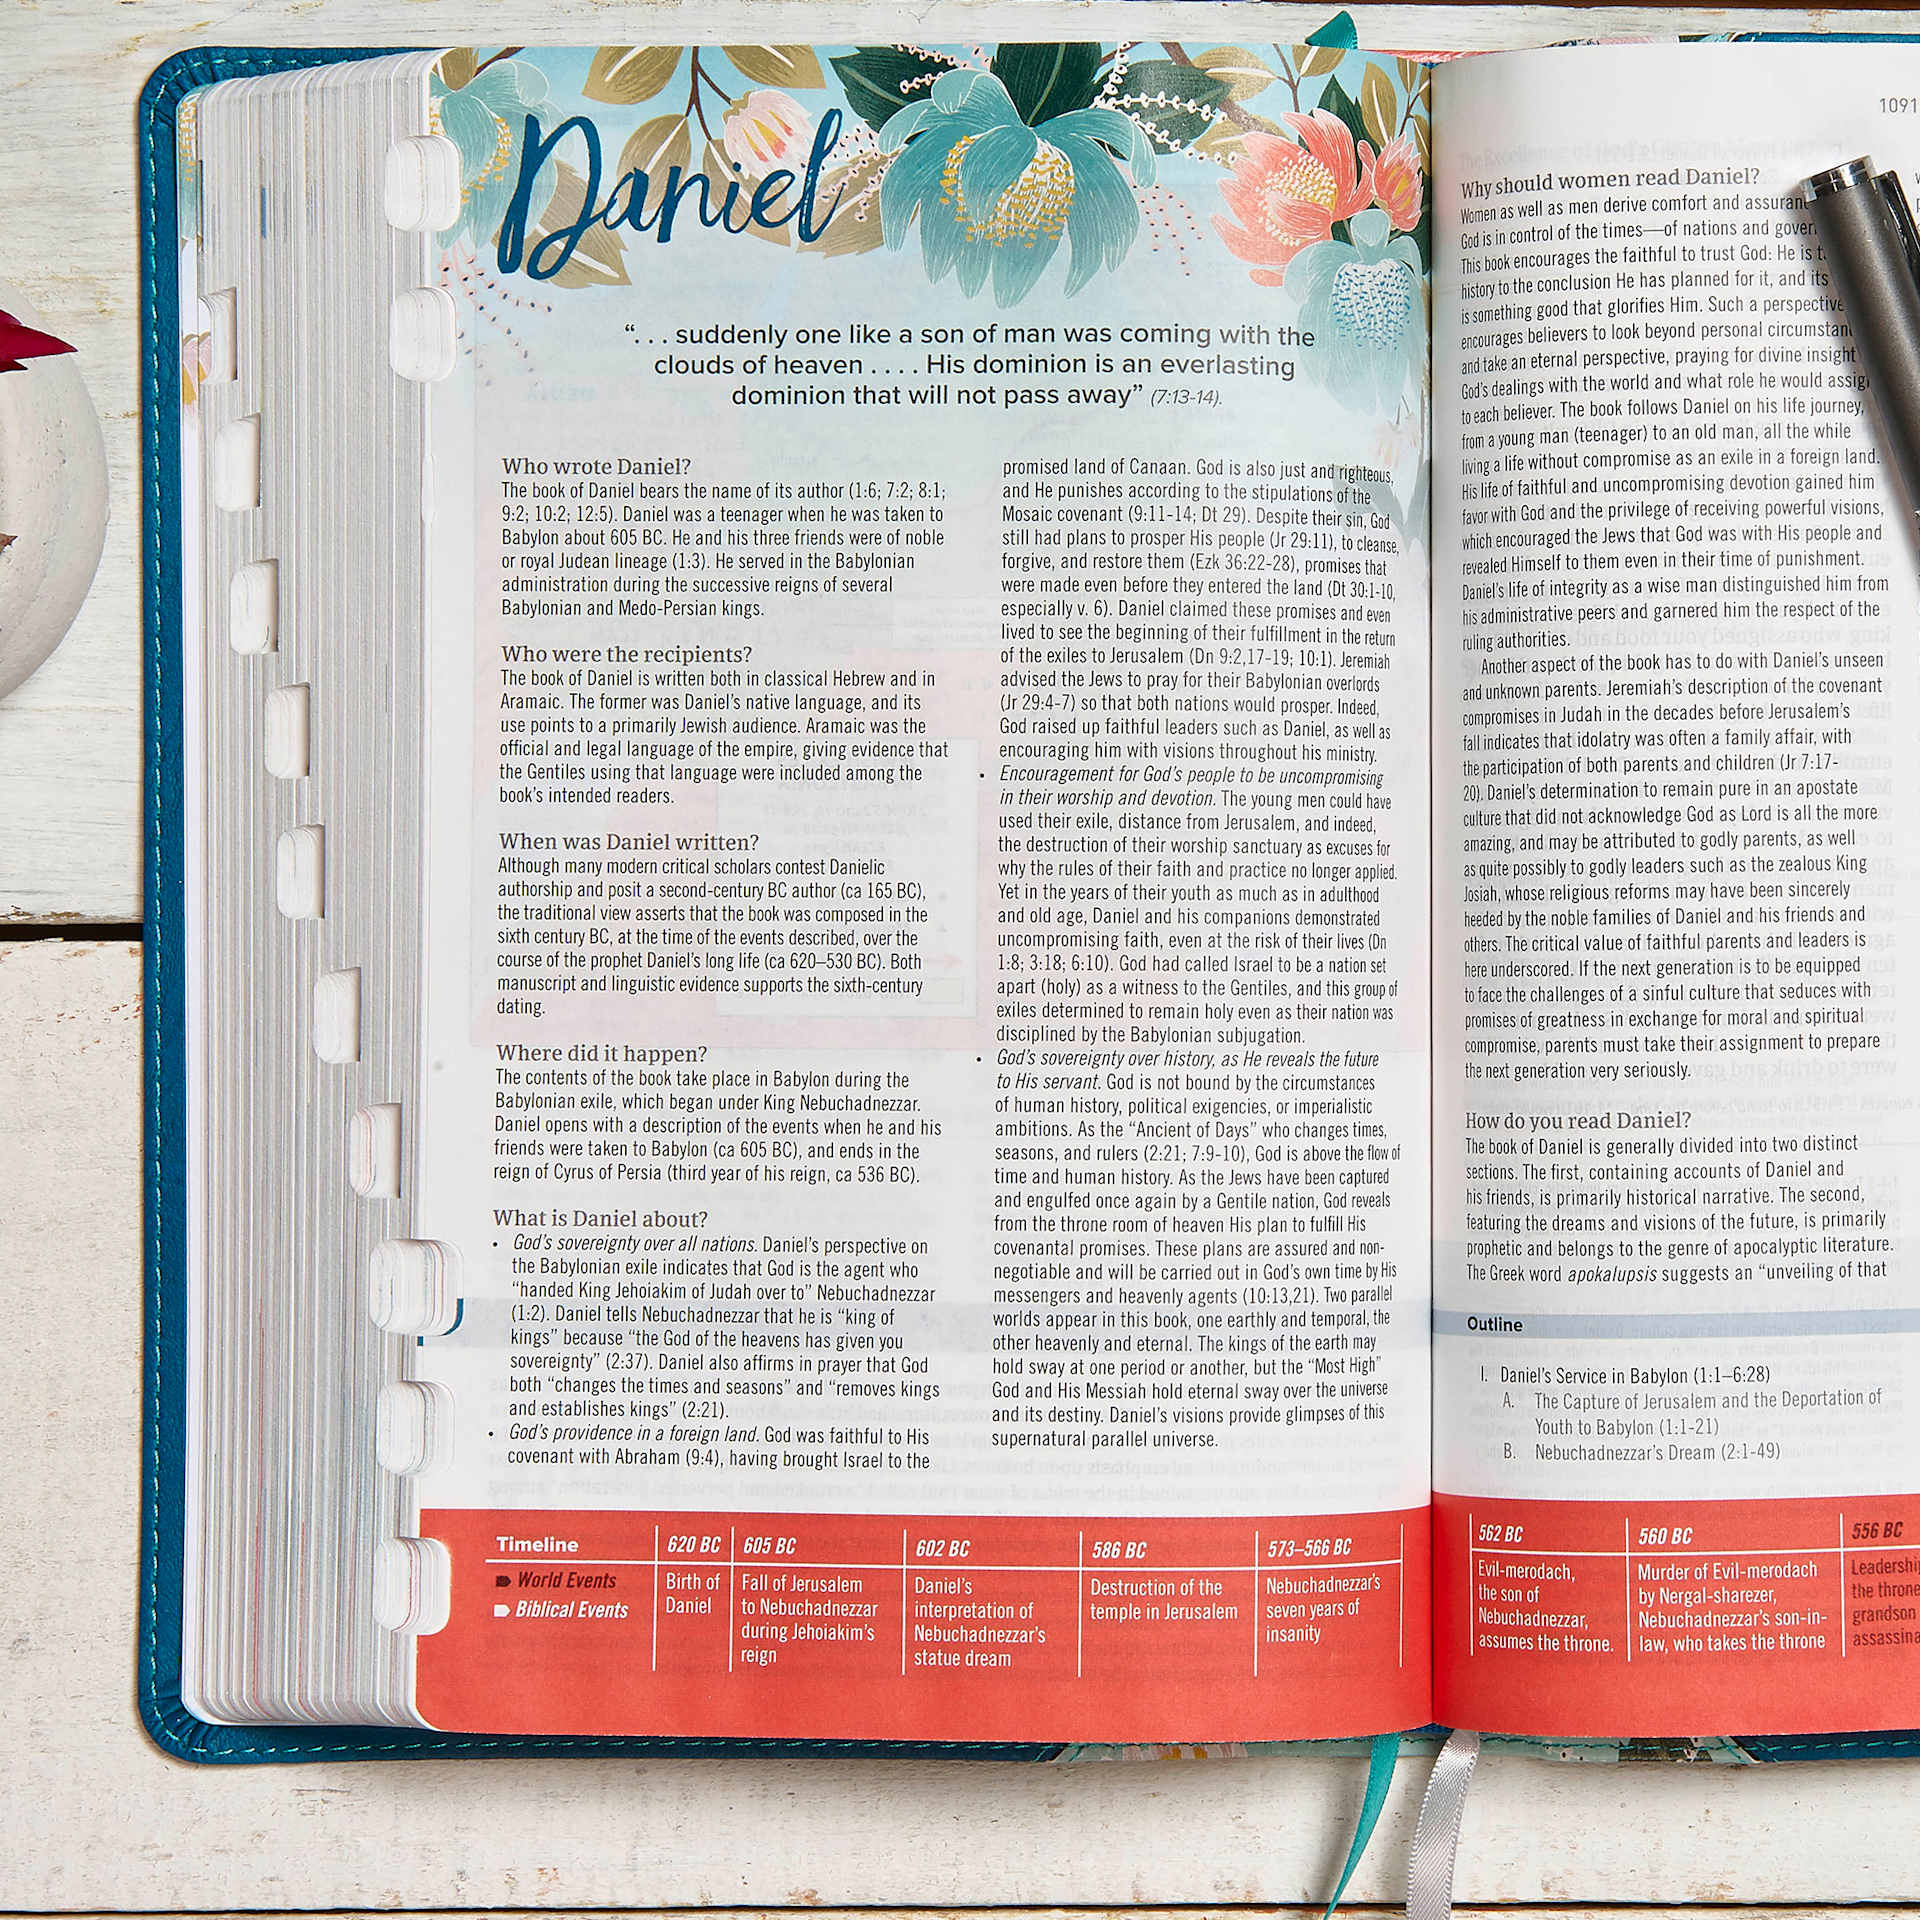 Daniel
“. . . suddenly one like a son of man was coming with the
clouds of heaven . . . . His dominion is an everlasting
dominion that will not pass away” (7:13-14).
Who wrote Daniel?
The book of Daniel bears the name of its author (1:6; 7:2; 8:1;
9:2; 10:2; 12:5). Daniel was a teenager when he was taken to
Babylon about 605 BC. He and his three friends were of noble
or royal Judean lineage (1:3). He served in the Babylonian
administration during the successive reigns of several
Babylonian and Medo-Persian kings.
Who were the recipients?
The book of Daniel is written both in classical Hebrew and in
Aramaic. The former was Daniel’s native language, and its
use points to a primarily Jewish audience. Aramaic was the
official and legal language of the empire, giving evidence that
the Gentiles using that language were included among the
book’s intended readers.
When was Daniel written?
Although many modern critical scholars contest Danielic
authorship and posit a second-century BC author (ca 165 BC),
the traditional view asserts that the book was composed in the
sixth century BC, at the time of the events described, over the
course of the prophet Daniel’s long life (ca 620–530 BC). Both
manuscript and linguistic evidence supports the sixth-century
dating.
Where did it happen?
The contents of the book take place in Babylon during the
Babylonian exile, which began under King Nebuchadnezzar.
Daniel opens with a description of the events when he and his
friends were taken to Babylon (ca 605 BC), and ends in the
reign of Cyrus of Persia (third year of his reign, ca 536 BC).
What is Daniel about?
• God’s sovereignty over all nations. Daniel’s perspective on
the Babylonian exile indicates that God is the agent who
“handed King Jehoiakim of Judah over to” Nebuchadnezzar
(1:2). Daniel tells Nebuchadnezzar that he is “king of
kings” because “the God of the heavens has given you
sovereignty” (2:37). Daniel also affirms in prayer that God
both “changes the times and seasons” and “removes kings
and establishes kings” (2:21).
• God’s providence in a foreign land. God was faithful to His
covenant with Abraham (9:4), having brought Israel to the
promised land of Canaan. God is also just and righteous,
and He punishes according to the stipulations of the
Mosaic covenant (9:11-14; Dt 29). Despite their sin, God
still had plans to prosper His people (Jr 29:11), to cleanse,
forgive, and restore them (Ezk 36:22-28), promises that
were made even before they entered the land (Dt 30:1-10,
especially v. 6). Daniel claimed these promises and even
lived to see the beginning of their fulfillment in the return
of the exiles to Jerusalem (Dn 9:2,17-19; 10:1). Jeremiah
advised the Jews to pray for their Babylonian overlords
(Jr 29:4-7) so that both nations would prosper. Indeed,
God raised up faithful leaders such as Daniel, as well as
encouraging him with visions throughout his ministry.
• Encouragement for God’s people to be uncompromising
in their worship and devotion. The young men could have
used their exile, distance from Jerusalem, and indeed,
the destruction of their worship sanctuary as excuses for
why the rules of their faith and practice no longer applied.
Yet in the years of their youth as much as in adulthood
and old age, Daniel and his companions demonstrated
uncompromising faith, even at the risk of their lives (Dn
1:8; 3:18; 6:10). God had called Israel to be a nation set
apart (holy) as a witness to the Gentiles, and this group of
exiles determined to remain holy even as their nation was
disciplined by the Babylonian subjugation.
• God’s sovereignty over history, as He reveals the future
to His servant. God is not bound by the circumstances
of human history, political exigencies, or imperialistic
ambitions. As the “Ancient of Days” who changes times,
seasons, and rulers (2:21; 7:9-10), God is above the flow of
time and human history. As the Jews have been captured
and engulfed once again by a Gentile nation, God reveals
from the throne room of heaven His plan to fulfill His
covenantal promises. These plans are assured and non-
negotiable and will be carried out in God’s own time by His
messengers and heavenly agents (10:13,21). Two parallel
worlds appear in this book, one earthly and temporal, the
other heavenly and eternal. The kings of the earth may
hold sway at one period or another, but the “Most High”
God and His Messiah hold eternal sway over the universe
and its destiny. Daniel’s visions provide glimpses of this
supernatural parallel universe.
Timeline
World Events
Biblical Events
620 BC
Birth of
Daniel
605 BC
Fall of Jerusalem
to Nebuchadnezzar
during Jehoiakim’s
reign
602 BC
Daniel’s
interpretation of
Nebuchadnezzar’s
statue dream
586 BC
Destruction of the
temple in Jerusalem
573–566 BC
Nebuchadnezzar’s
seven years of
insanity
1091
Why should women read Daniel?
Women as well as men derive comfort and
God is in control of the times—of nations and
This book encourages the faithful to trust God: He is
history to the conclusion He has planned for it, and its
is something good that glorifies Him. Such a perspective
encourages believers to look beyond personal
and take an eternal perspective, praying for divine insight
God’s dealings with the world and what role he would
to each believer. The book follows Daniel on his life journey,
from a young man (teenager) to an old man, all the while
living a life without compromise as an exile in a foreign land.
His life of faithful and uncompromising devotion gained him
favor with God and the privilege of receiving powerful visions,
which encouraged the Jews that God was with His people and
revealed Himself to them even in their time of punishment.
Daniel’s life of integrity as a wise man distinguished him from
his administrative peers and garnered him the respect of the
ruling authorities.
Another aspect of the book has to do with Daniel’s unseen
and unknown parents. Jeremiah’s description of the covenant
compromises in Judah in the decades before Jerusalem’s
fall indicates that idolatry was often a family affair, with
the participation of both parents and children (Jr 7:17-
20). Daniel’s determination to remain pure in an apostate
culture that did not acknowledge God as Lord is all the more
amazing, and may be attributed to godly parents, as well
as quite possibly to godly leaders such as the zealous King
Josiah, whose religious reforms may have been sincerely
heeded by the noble families of Daniel and his friends and
others. The critical value of faithful parents and leaders is
here underscored. If the next generation is to be equipped
to face the challenges of a sinful culture that seduces with
promises of greatness in exchange for moral and spiritual
compromise, parents must take their assignment to prepare
the next generation very seriously.
How do you read Daniel?
The book of Daniel is generally divided into two distinct
sections. The first, containing accounts of Daniel and
his friends, is primarily historical narrative. The second,
featuring the dreams and visions of the future, is primarily
prophetic and belongs to the genre of apocalyptic literature.
The Greek word apokalupsis suggests an “unveiling of that
Outline
I. Daniel’s Service in Babylon (1:1–6:28)
A. The Capture of Jerusalem and the Deportation of
Youth to Babylon (1:1-21)
B. Nebuchadnezzar’s Dream (2:1-49)
562 BC
Evil-merodach,
the son of
Nebuchadnezzar,
assumes the throne.
560 BC
Murder of Evil-merodach
by Nergal-sharezer,
Nebuchadnezzar’s son-in-
law, who takes the throne
556 BC
the throne
grandson